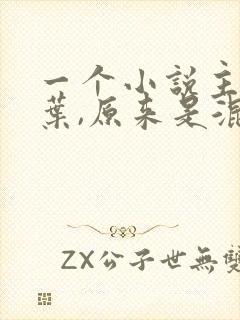 一个小说主
葉,原来是混
ZX公子世無雙